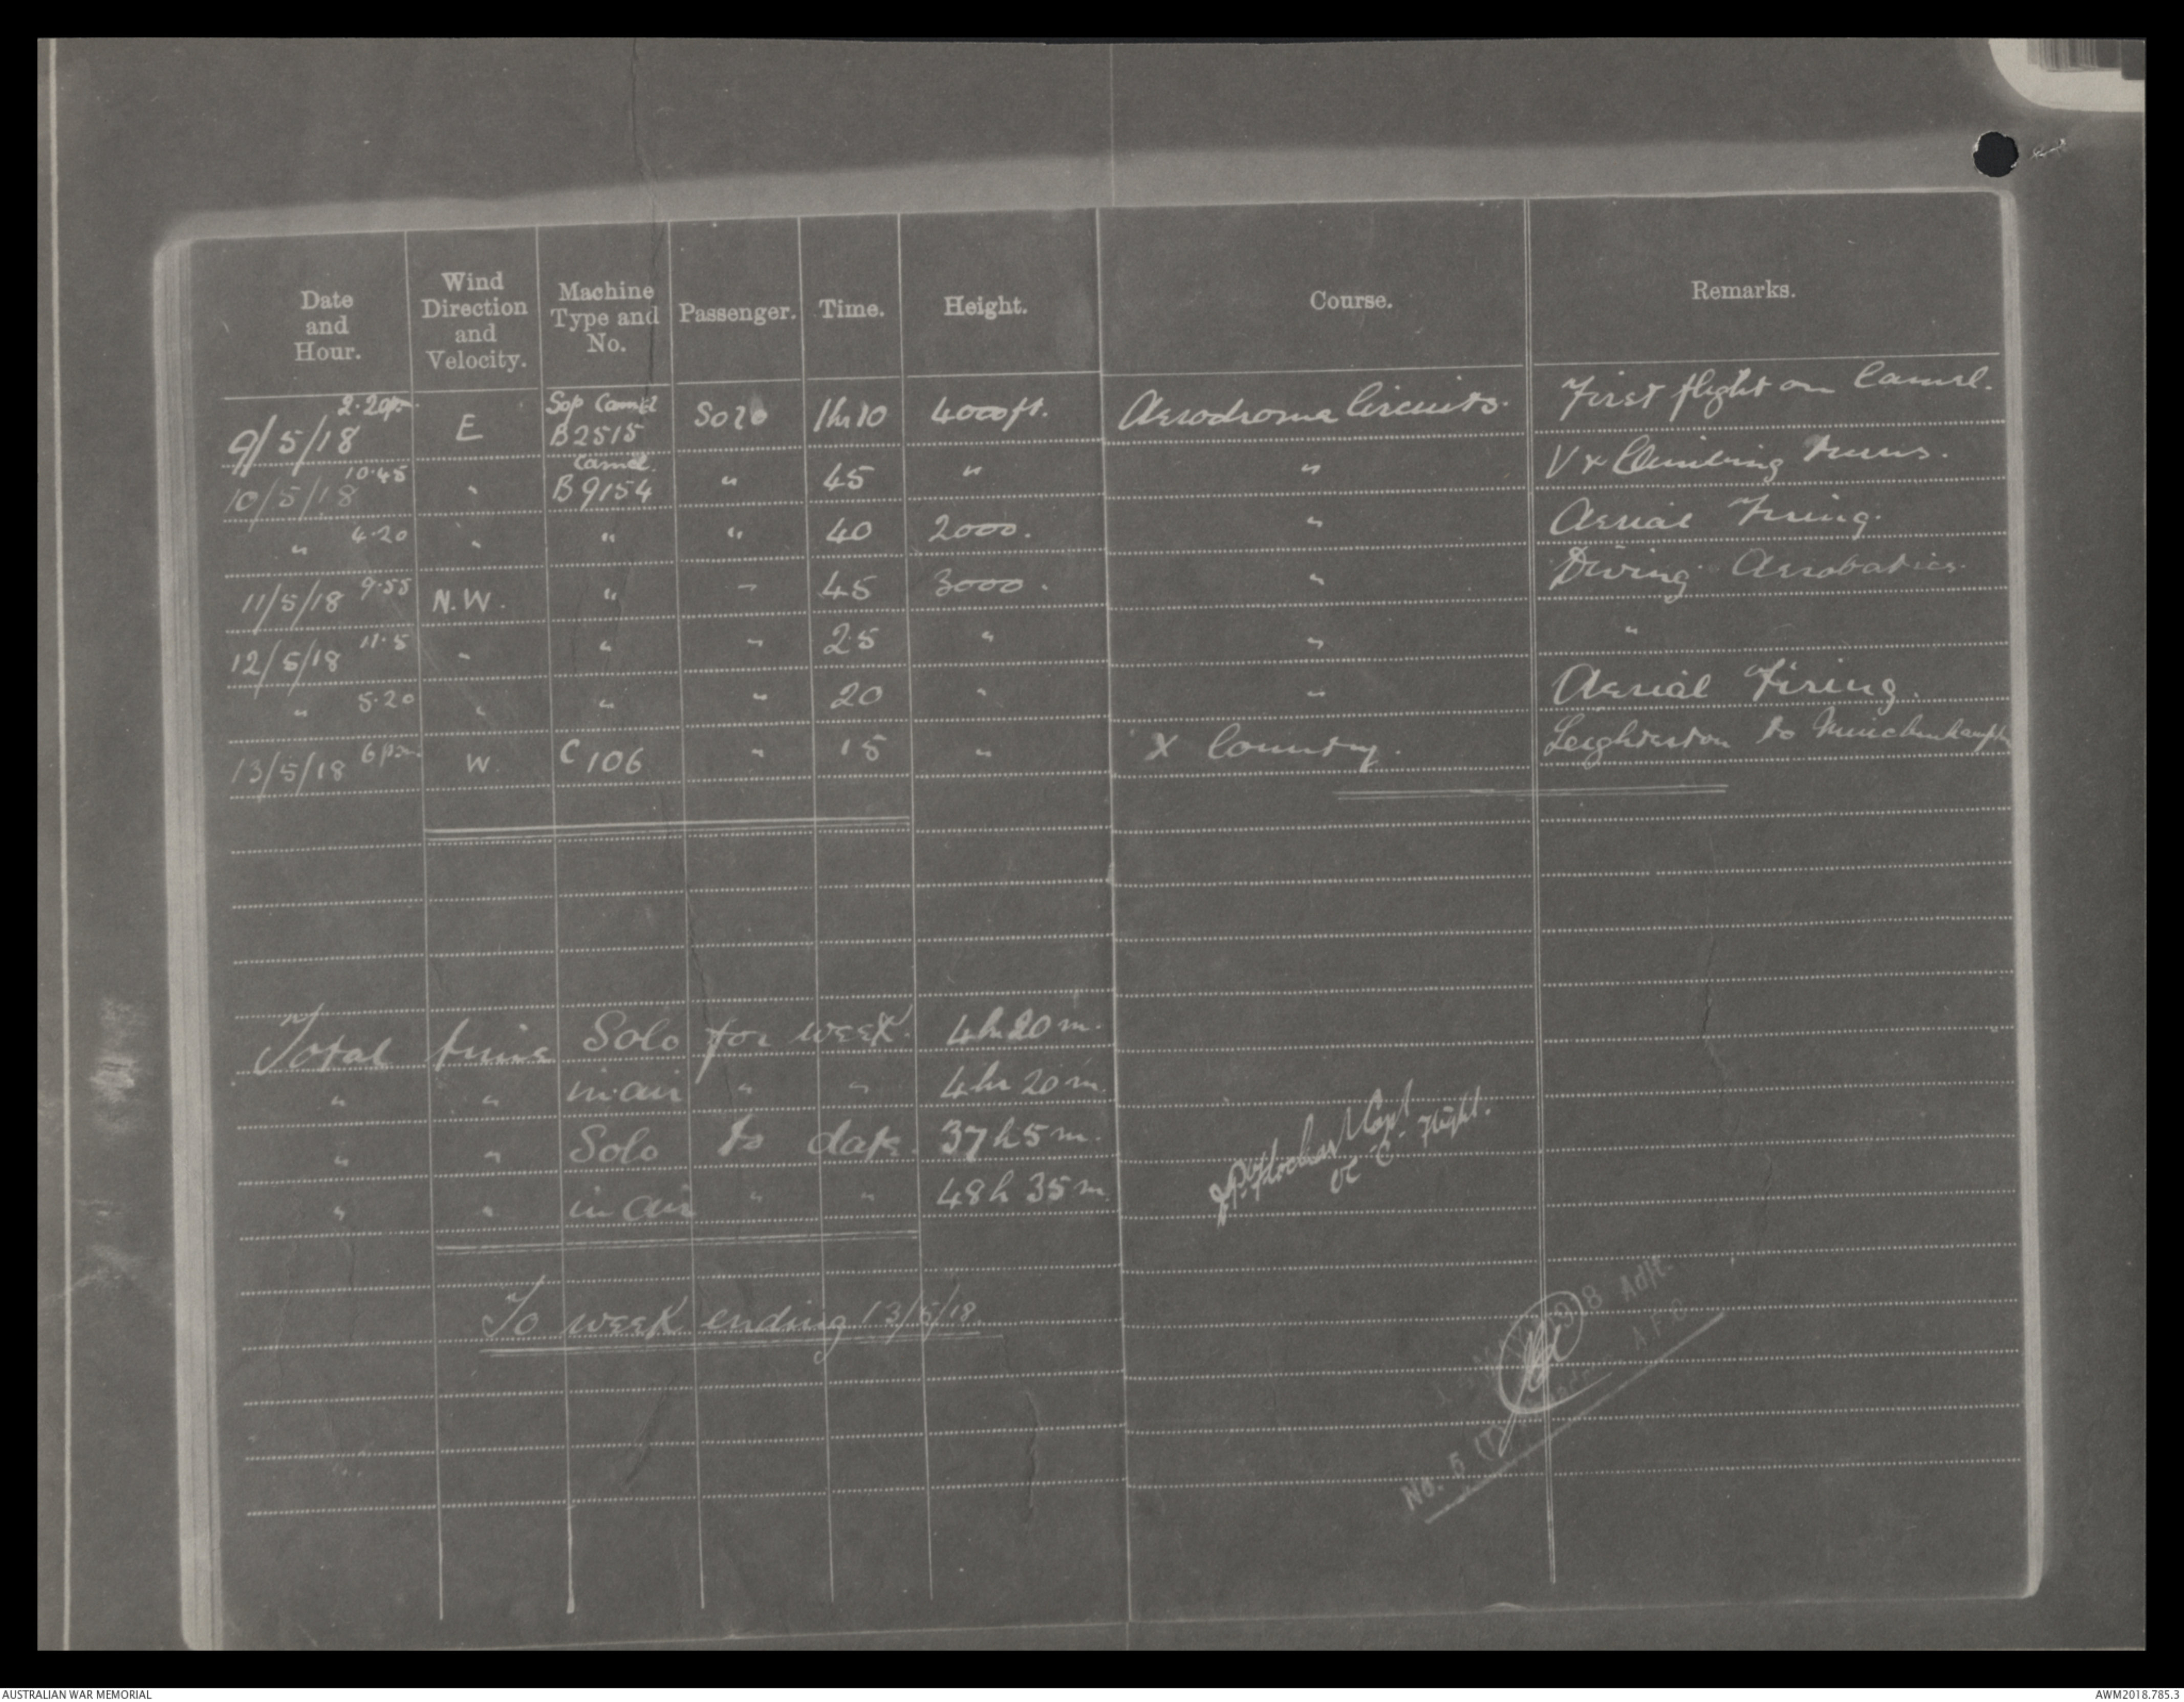 Date and Hour. Wind Direction and Velocity. Machine Type and No. Passenger. Time. Height. Course. Remarks.
9/5/18 2.20pm. E Sop Camel B2515 Solo 1hr 10 4000ft. Aerodrome Circuits. First flight on Camel.
10/5/18 10.45 " Camel. B9154 " 45 " " V & Climbing turns.
" 4.20 " " " 40 2000. " Aerial Firing.
11/5/18 9.55 N.W. " " 45 3000. " Diving Aerobatics.
12/5/18 11.5 " " " 25 " " "
" 5.20 " " " 20 " " Aerial Firing.
13/5/18 6pm. W. C106 " 15 " X Country. Leighterton to Minchinhampton
Total time Solo for week. 4h 20m.
" " in air " " 4hr 20m.
" " Solo to date. 37h 5m.
" " in air " " 48h 35m.
Capt
OC C. Flight.
To week ending 13/5/18.
1918 Adjt.
No. 5 (T) A F C
AUSTRALIAN WAR MEMORIAL
AWM2018.785.3